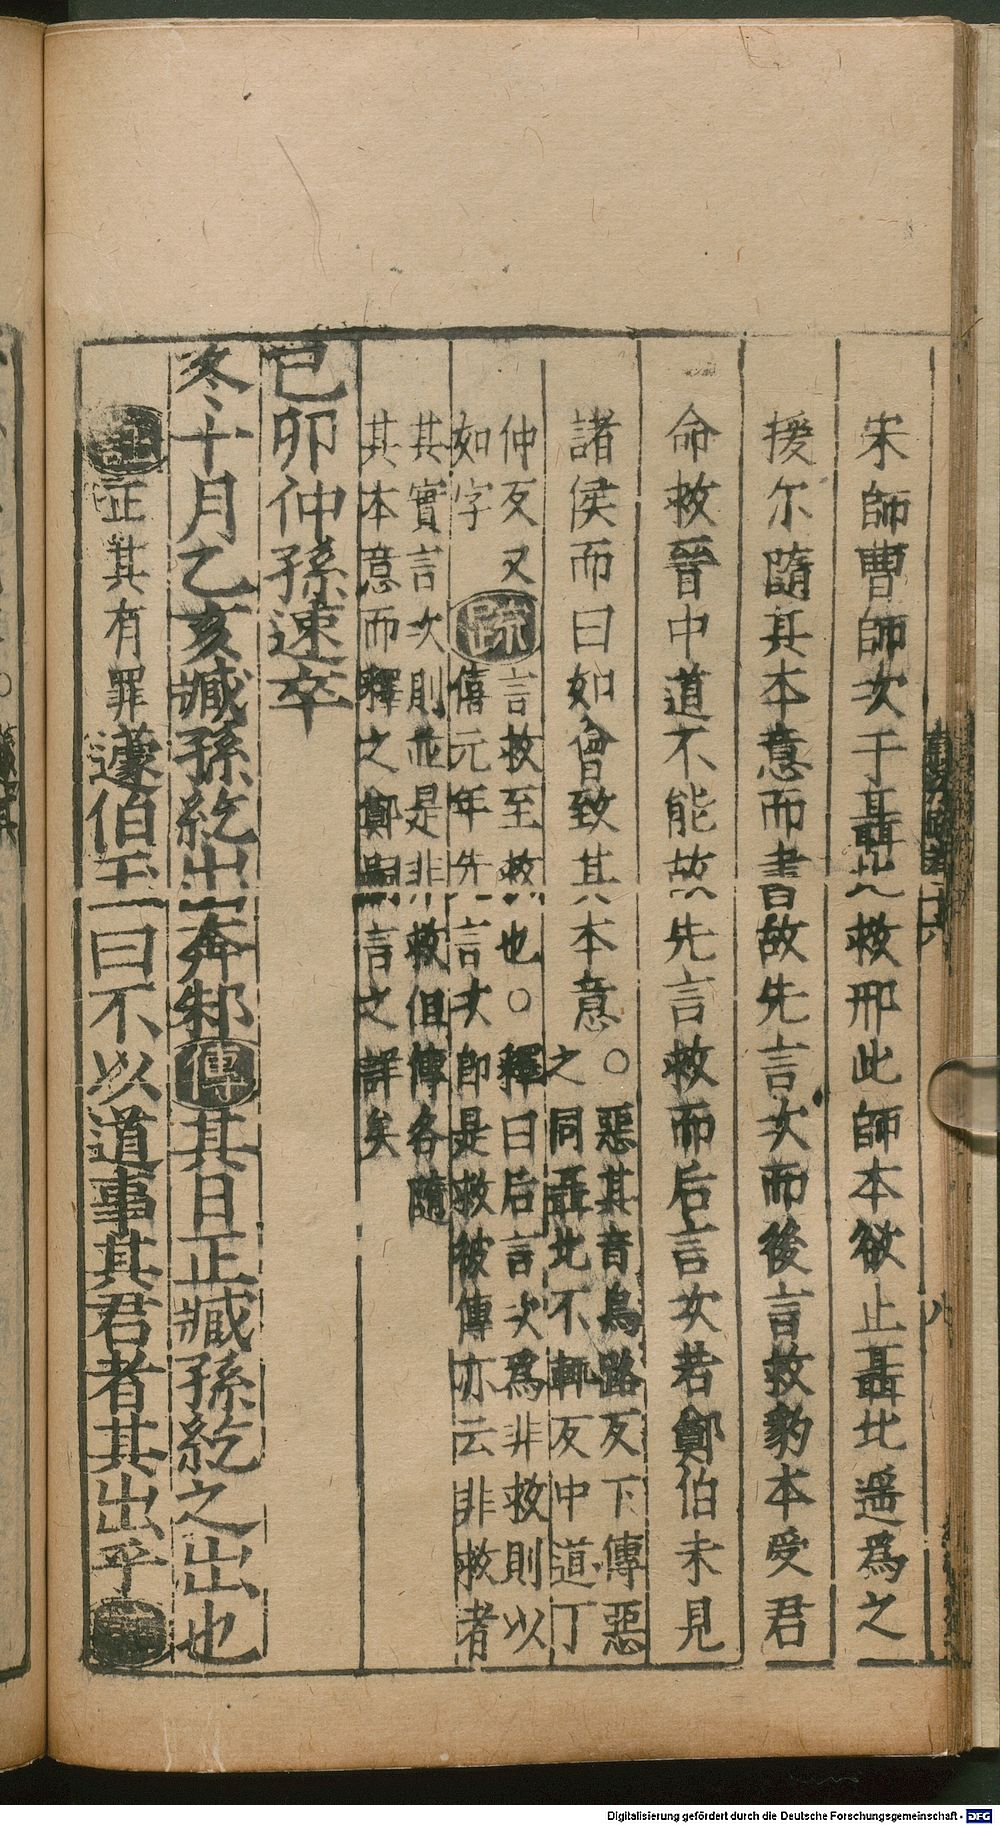 宋師曹師次于聶北救邢此師本欲止聶北遥爲之
援尔隨其本意而書故先言次而後言救豹本受君
命救晉中道不能故先言救而后言次若鄭伯未見
諸侯而曰如會致其本意
○惡其音烏路反下傳惡
之同聶北不輒反中道丁
仲反又
如字
疏
言救至救也○釋曰后言次爲非救則以
僖元年先言次即是救彼傳亦云非救者
其實言次則並是非救但傳各隨
其本意而釋之鄭嗣言之詳矣
己卯仲孫速卒
冬十月乙亥臧孫紇出奔邾傳其日正臧孫紇之出也
註正其有罪蘧伯玉曰不以道事其君者其出乎
Digitalisierung gefördert durch die Deutsche Forschungsgemeinschaft - DFG